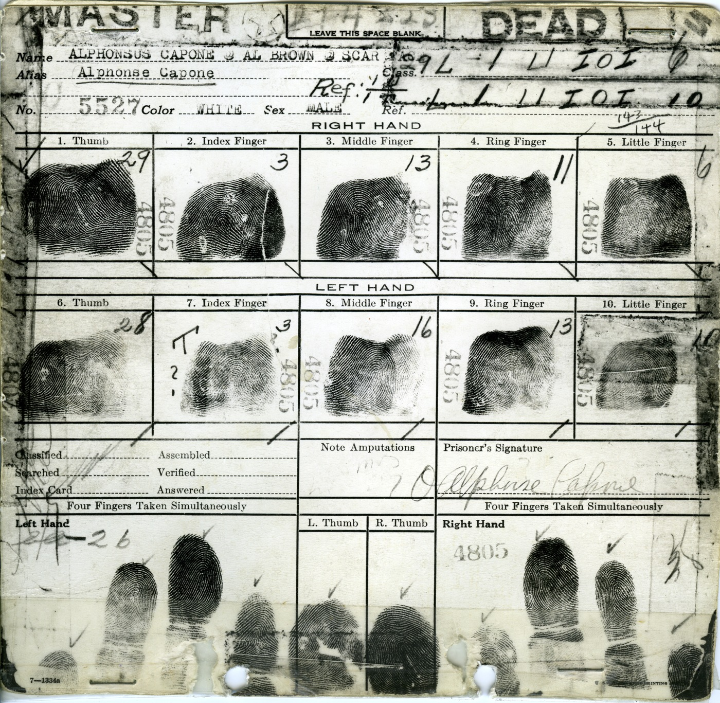 MASTER
DEAD
LEAVE THIS SPACE BLANK
Name ALPHONSUS CAPONE @ AL BROWN @ SCAR
Class. 29 L 1 U IOI 6
Alias Alphonse Capone
Ref:
L 1 U IOI 10
No. 5527 Color WHITE Sex MALE Ref.
RIGHT HAND
144
1. Thumb 2. Index Finger 3. Middle Finger 4. Ring Finger 5. Little Finger
29 3 13 11 6
4805 4805 4805 4805 4805
LEFT HAND
6. Thumb 7. Index Finger 8. Middle Finger 9. Ring Finger 10. Little Finger
28 T ? ? 3 16 13
4805 4805 4805 4805 4805
Classified Assembled
Searched Verified
Index Card Answered
Note Amputations
Prisoner's Signature
Alphonse Capone
Four Fingers Taken Simultaneously
Four Fingers Taken Simultaneously
Left Hand
L. Thumb R. Thumb
Right Hand
26
4805
7—1334a